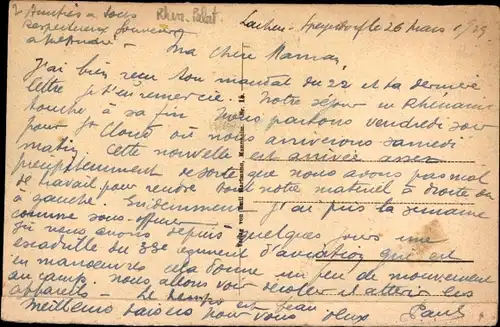 Rhein. Palat
Lachen-Speyerdorf le 26 mars 1929
Ma chère Maman,
J'ai bien reçu ton mandat du 22 et ta dernière
lettre je t'en remercie. Notre séjour en Rhénanie
touche à sa fin. Nous partons vendredi soir
pour St Cloud où nous arriverons samedi
matin. Cette nouvelle est arrivée assez
précipitemment de sorte que nous avons pas mal
de travail pour rendre tout notre matériel à droite et
à gauche. Evidemment j'ai pris la semaine
comme sous-officier
Ici nous avons depuis quelques jours une
escadrille du 33e régiment d'aviation qui est
en manoeuvres cela donne un peu de mouvement
au camp. Nous allons voir décoller et atterir les
appareils - Le temps est beau
Meilleurs baisers pour vous deux Paul